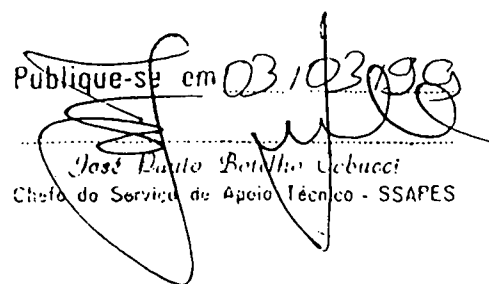 Publique-se em 03/03/99
José Paulo Botelho Cobucci
Chefe do Serviço de Apoio Técnico - SSAPES